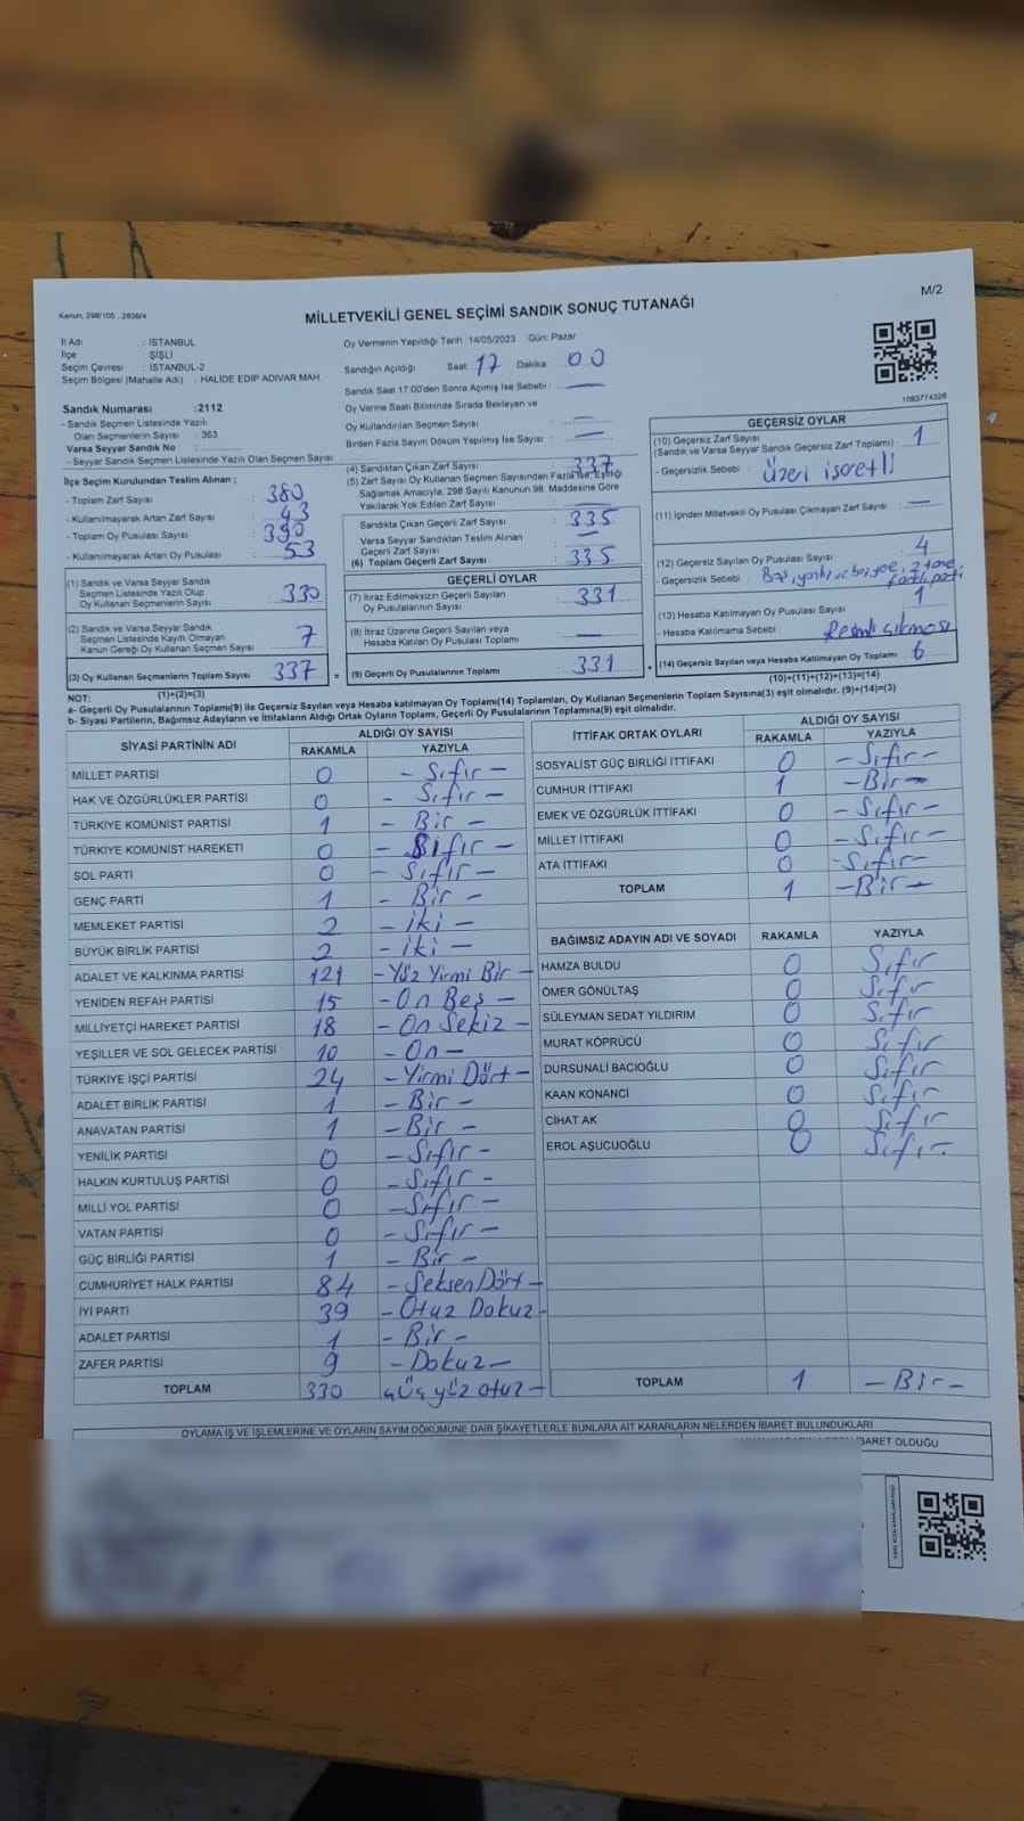 M/2
Kanun: 298/105 , 2839/4
MİLLETVEKİLİ GENEL SEÇİMİ SANDIK SONUÇ TUTANAĞI
İl Adı : İSTANBUL
İlçe : ŞİŞLİ
Seçim Çevresi : İSTANBUL-2
Seçim Bölgesi (Mahalle Adı) : HALİDE EDİP ADIVAR MAH
Sandık Numarası :2112
- Sandık Seçmen Listesinde Yazılı
Olan Seçmenlerin Sayısı : 363
Varsa Seyyar Sandık No :
- Seyyar Sandık Seçmen Listesinde Yazılı Olan Seçmen Sayısı
Oy Vermenin Yapıldığı Tarih 14/05/2023 Gün: Pazar
Sandığın Açıldığı Saat 17 Dakika 00
Sandık Saat 17:00'den Sonra Açılmış İse Sebebi : —
Oy Verme Saati Bitiminde Sırada Bekleyen ve
Oy Kullandırılan Seçmen Sayısı : —
Birden Fazla Sayım Döküm Yapılmış İse Sayısı : —
İlçe Seçim Kurulundan Teslim Alınan ;
- Toplam Zarf Sayısı : 380
- Kullanılmayarak Artan Zarf Sayısı : 43
- Toplam Oy Pusulası Sayısı : 390
- Kullanılmayarak Artan Oy Pusulası : 53
(1) Sandık ve Varsa Seyyar Sandık
Seçmen Listesinde Yazılı Olup
Oy Kullanan Seçmenlerin Sayısı 330
(2) Sandık ve Varsa Seyyar Sandık
Seçmen Listesinde Kayıtlı Olmayan
Kanun Gereği Oy Kullanan Seçmen Sayısı 7
(3) Oy Kullanan Seçmenlerin Toplam Sayısı 337
(1)+(2)=(3)
(4) Sandıktan Çıkan Zarf Sayısı 337
(5) Zarf Sayısı Oy Kullanan Seçmen Sayısından Fazla İse, Eşitliği
Sağlamak Amacıyla, 298 Sayılı Kanunun 98. Maddesine Göre
Yakılarak Yok Edilen Zarf Sayısı
Sandıkta Çıkan Geçerli Zarf Sayısı : 335
Varsa Seyyar Sandıktan Teslim Alınan
Geçerli Zarf Sayısı : —
(6) Toplam Geçerli Zarf Sayısı : 335
GEÇERLİ OYLAR
(7) İtiraz Edilmeksizin Geçerli Sayılan
Oy Pusulalarının Sayısı : 331
(8) İtiraz Üzerine Geçerli Sayılan veya
Hesaba Katılan Oy Pusulası Toplamı : —
(9) Geçerli Oy Pusulalarının Toplamı : 331
1093774326
GEÇERSİZ OYLAR
(10) Geçersiz Zarf Sayısı
(Sandık ve Varsa Seyyar Sandık Geçersiz Zarf Toplamı) : 1
- Geçersizlik Sebebi : Üzeri işaretli
(11) İçinden Milletvekili Oy Pusulası Çıkmayan Zarf Sayısı : —
(12) Geçersiz Sayılan Oy Pusulası Sayısı : 4
- Geçersizlik Sebebi : 2 tane
farklı parti
(13) Hesaba Katılmayan Oy Pusulası Sayısı : 1
- Hesaba Katılmama Sebebi : çıkması
(14) Geçersiz Sayılan veya Hesaba Katılmayan Oy Toplamı : 6
(10)+(11)+(12)+(13)=(14)
NOT:
a- Geçerli Oy Pusulalarının Toplamı(9) ile Geçersiz Sayılan veya Hesaba katılmayan Oy Toplamı(14) Toplamları, Oy Kullanan Seçmenlerin Toplam Sayısına(3) eşit olmalıdır. (9)+(14)=(3)
b- Siyasi Partilerin, Bağımsız Adayların ve İttifakların Aldığı Ortak Oyların Toplamı, Geçerli Oy Pusulalarının Toplamına(9) eşit olmalıdır.
SİYASİ PARTİNİN ADI ALDIĞI OY SAYISI
RAKAMLA YAZIYLA
MİLLET PARTİSİ 0 - Sıfır -
HAK VE ÖZGÜRLÜKLER PARTİSİ 0 - Sıfır -
TÜRKİYE KOMÜNİST PARTİSİ 1 - Bir -
TÜRKİYE KOMÜNİST HAREKETİ 0 - Sıfır -
SOL PARTİ 0 - Sıfır -
GENÇ PARTİ 1 - Bir -
MEMLEKET PARTİSİ 2 - İki -
BÜYÜK BİRLİK PARTİSİ 2 - İki -
ADALET VE KALKINMA PARTİSİ 121 - Yüz Yirmi Bir -
YENİDEN REFAH PARTİSİ 15 - On Beş -
MİLLİYETÇİ HAREKET PARTİSİ 18 - On Sekiz -
YEŞİLLER VE SOL GELECEK PARTİSİ 10 - On -
TÜRKİYE İŞÇİ PARTİSİ 24 - Yirmi Dört -
ADALET BİRLİK PARTİSİ 1 - Bir -
ANAVATAN PARTİSİ 1 - Bir -
YENİLİK PARTİSİ 0 - Sıfır -
HALKIN KURTULUŞ PARTİSİ 0 - Sıfır -
MİLLİ YOL PARTİSİ 0 - Sıfır -
VATAN PARTİSİ 0 - Sıfır -
GÜÇ BİRLİĞİ PARTİSİ 1 - Bir -
CUMHURİYET HALK PARTİSİ 84 - Seksen Dört -
İYİ PARTİ 39 - Otuz Dokuz -
ADALET PARTİSİ 1 - Bir -
ZAFER PARTİSİ 9 - Dokuz -
TOPLAM 330 üçyüz otuz -
İTTİFAK ORTAK OYLARI ALDIĞI OY SAYISI
RAKAMLA YAZIYLA
SOSYALİST GÜÇ BİRLİĞİ İTTİFAKI 0 - Sıfır -
CUMHUR İTTİFAKI 1 - Bir -
EMEK VE ÖZGÜRLÜK İTTİFAKI 0 - Sıfır -
MİLLET İTTİFAKI 0 - Sıfır -
ATA İTTİFAKI 0 - Sıfır -
TOPLAM 1 - Bir -
BAĞIMSIZ ADAYIN ADI VE SOYADI RAKAMLA YAZIYLA
HAMZA BULDU 0 Sıfır
ÖMER GÖNÜLTAŞ 0 Sıfır
SÜLEYMAN SEDAT YILDIRIM 0 Sıfır
MURAT KÖPRÜCÜ 0 Sıfır
DURSUNALİ BACIOĞLU 0 Sıfır
KAAN KONANCI 0 Sıfır
CİHAT AK 0 Sıfır
EROL AŞUCUOĞLU 0 Sıfır
TOPLAM 1 - Bir -
OYLAMA İŞ VE İŞLEMLERİNE VE OYLARIN SAYIM DÖKÜMÜNE DAİR ŞİKAYETLERLE BUNLARA AİT KARARLARIN NELERDEN İBARET BULUNDUKLARI
İBARET OLDUĞU